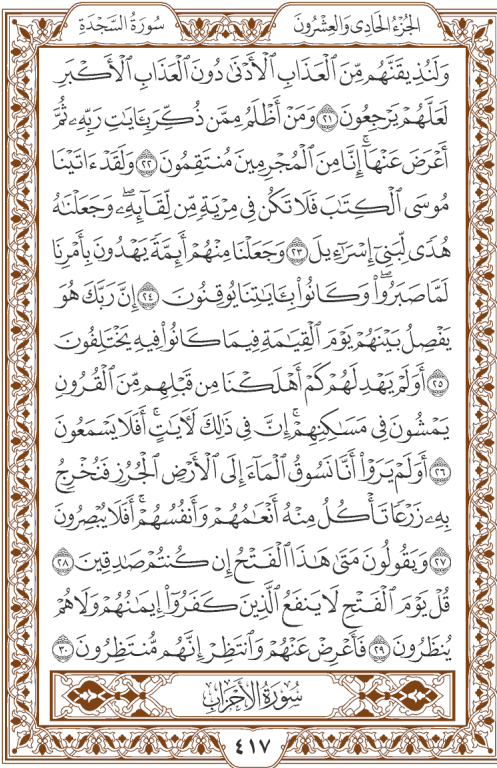 الجُزْءُ الحَادِى وَالعِشْرُونَ
سُورَةُ السَّجْدَةِ
وَلَنُذِيقَنَّهُم مِّنَ ٱلْعَذَابِ ٱلْأَدْنَىٰ دُونَ ٱلْعَذَابِ ٱلْأَكْبَرِ
لَعَلَّهُمْ يَرْجِعُونَ ٢١ وَمَنْ أَظْلَمُ مِمَّن ذُكِّرَ بِـَٔايَٰتِ رَبِّهِۦ ثُمَّ
أَعْرَضَ عَنْهَآۚ إِنَّا مِنَ ٱلْمُجْرِمِينَ مُنتَقِمُونَ ٢٢ وَلَقَدْ ءَاتَيْنَا
مُوسَى ٱلْكِتَٰبَ فَلَا تَكُن فِى مِرْيَةٍ مِّن لِّقَآئِهِۦۖ وَجَعَلْنَٰهُ
هُدًى لِّبَنِىٓ إِسْرَٰٓءِيلَ ٢٣ وَجَعَلْنَا مِنْهُمْ أَئِمَّةً يَهْدُونَ بِأَمْرِنَا
لَمَّا صَبَرُوا۟ۖ وَكَانُوا۟ بِـَٔايَٰتِنَا يُوقِنُونَ ٢٤ إِنَّ رَبَّكَ هُوَ
يَفْصِلُ بَيْنَهُمْ يَوْمَ ٱلْقِيَٰمَةِ فِيمَا كَانُوا۟ فِيهِ يَخْتَلِفُونَ
٢٥ أَوَلَمْ يَهْدِ لَهُمْ كَمْ أَهْلَكْنَا مِن قَبْلِهِم مِّنَ ٱلْقُرُونِ
يَمْشُونَ فِى مَسَٰكِنِهِمْۚ إِنَّ فِى ذَٰلِكَ لَـَٔايَٰتٍۚ أَفَلَا يَسْمَعُونَ
٢٦ أَوَلَمْ يَرَوْا۟ أَنَّا نَسُوقُ ٱلْمَآءَ إِلَى ٱلْأَرْضِ ٱلْجُرُزِ فَنُخْرِجُ
بِهِۦ زَرْعًا تَأْكُلُ مِنْهُ أَنْعَٰمُهُمْ وَأَنفُسُهُمْۚ أَفَلَا يُبْصِرُونَ
٢٧ وَيَقُولُونَ مَتَىٰ هَٰذَا ٱلْفَتْحُ إِن كُنتُمْ صَٰدِقِينَ ٢٨
قُلْ يَوْمَ ٱلْفَتْحِ لَا يَنفَعُ ٱلَّذِينَ كَفَرُوٓا۟ إِيمَٰنُهُمْ وَلَا هُمْ
يُنظَرُونَ ٢٩ فَأَعْرِضْ عَنْهُمْ وَٱنتَظِرْ إِنَّهُم مُّنتَظِرُونَ ٣٠
سُورَةُ الأَحْزَابِ
٤١٧